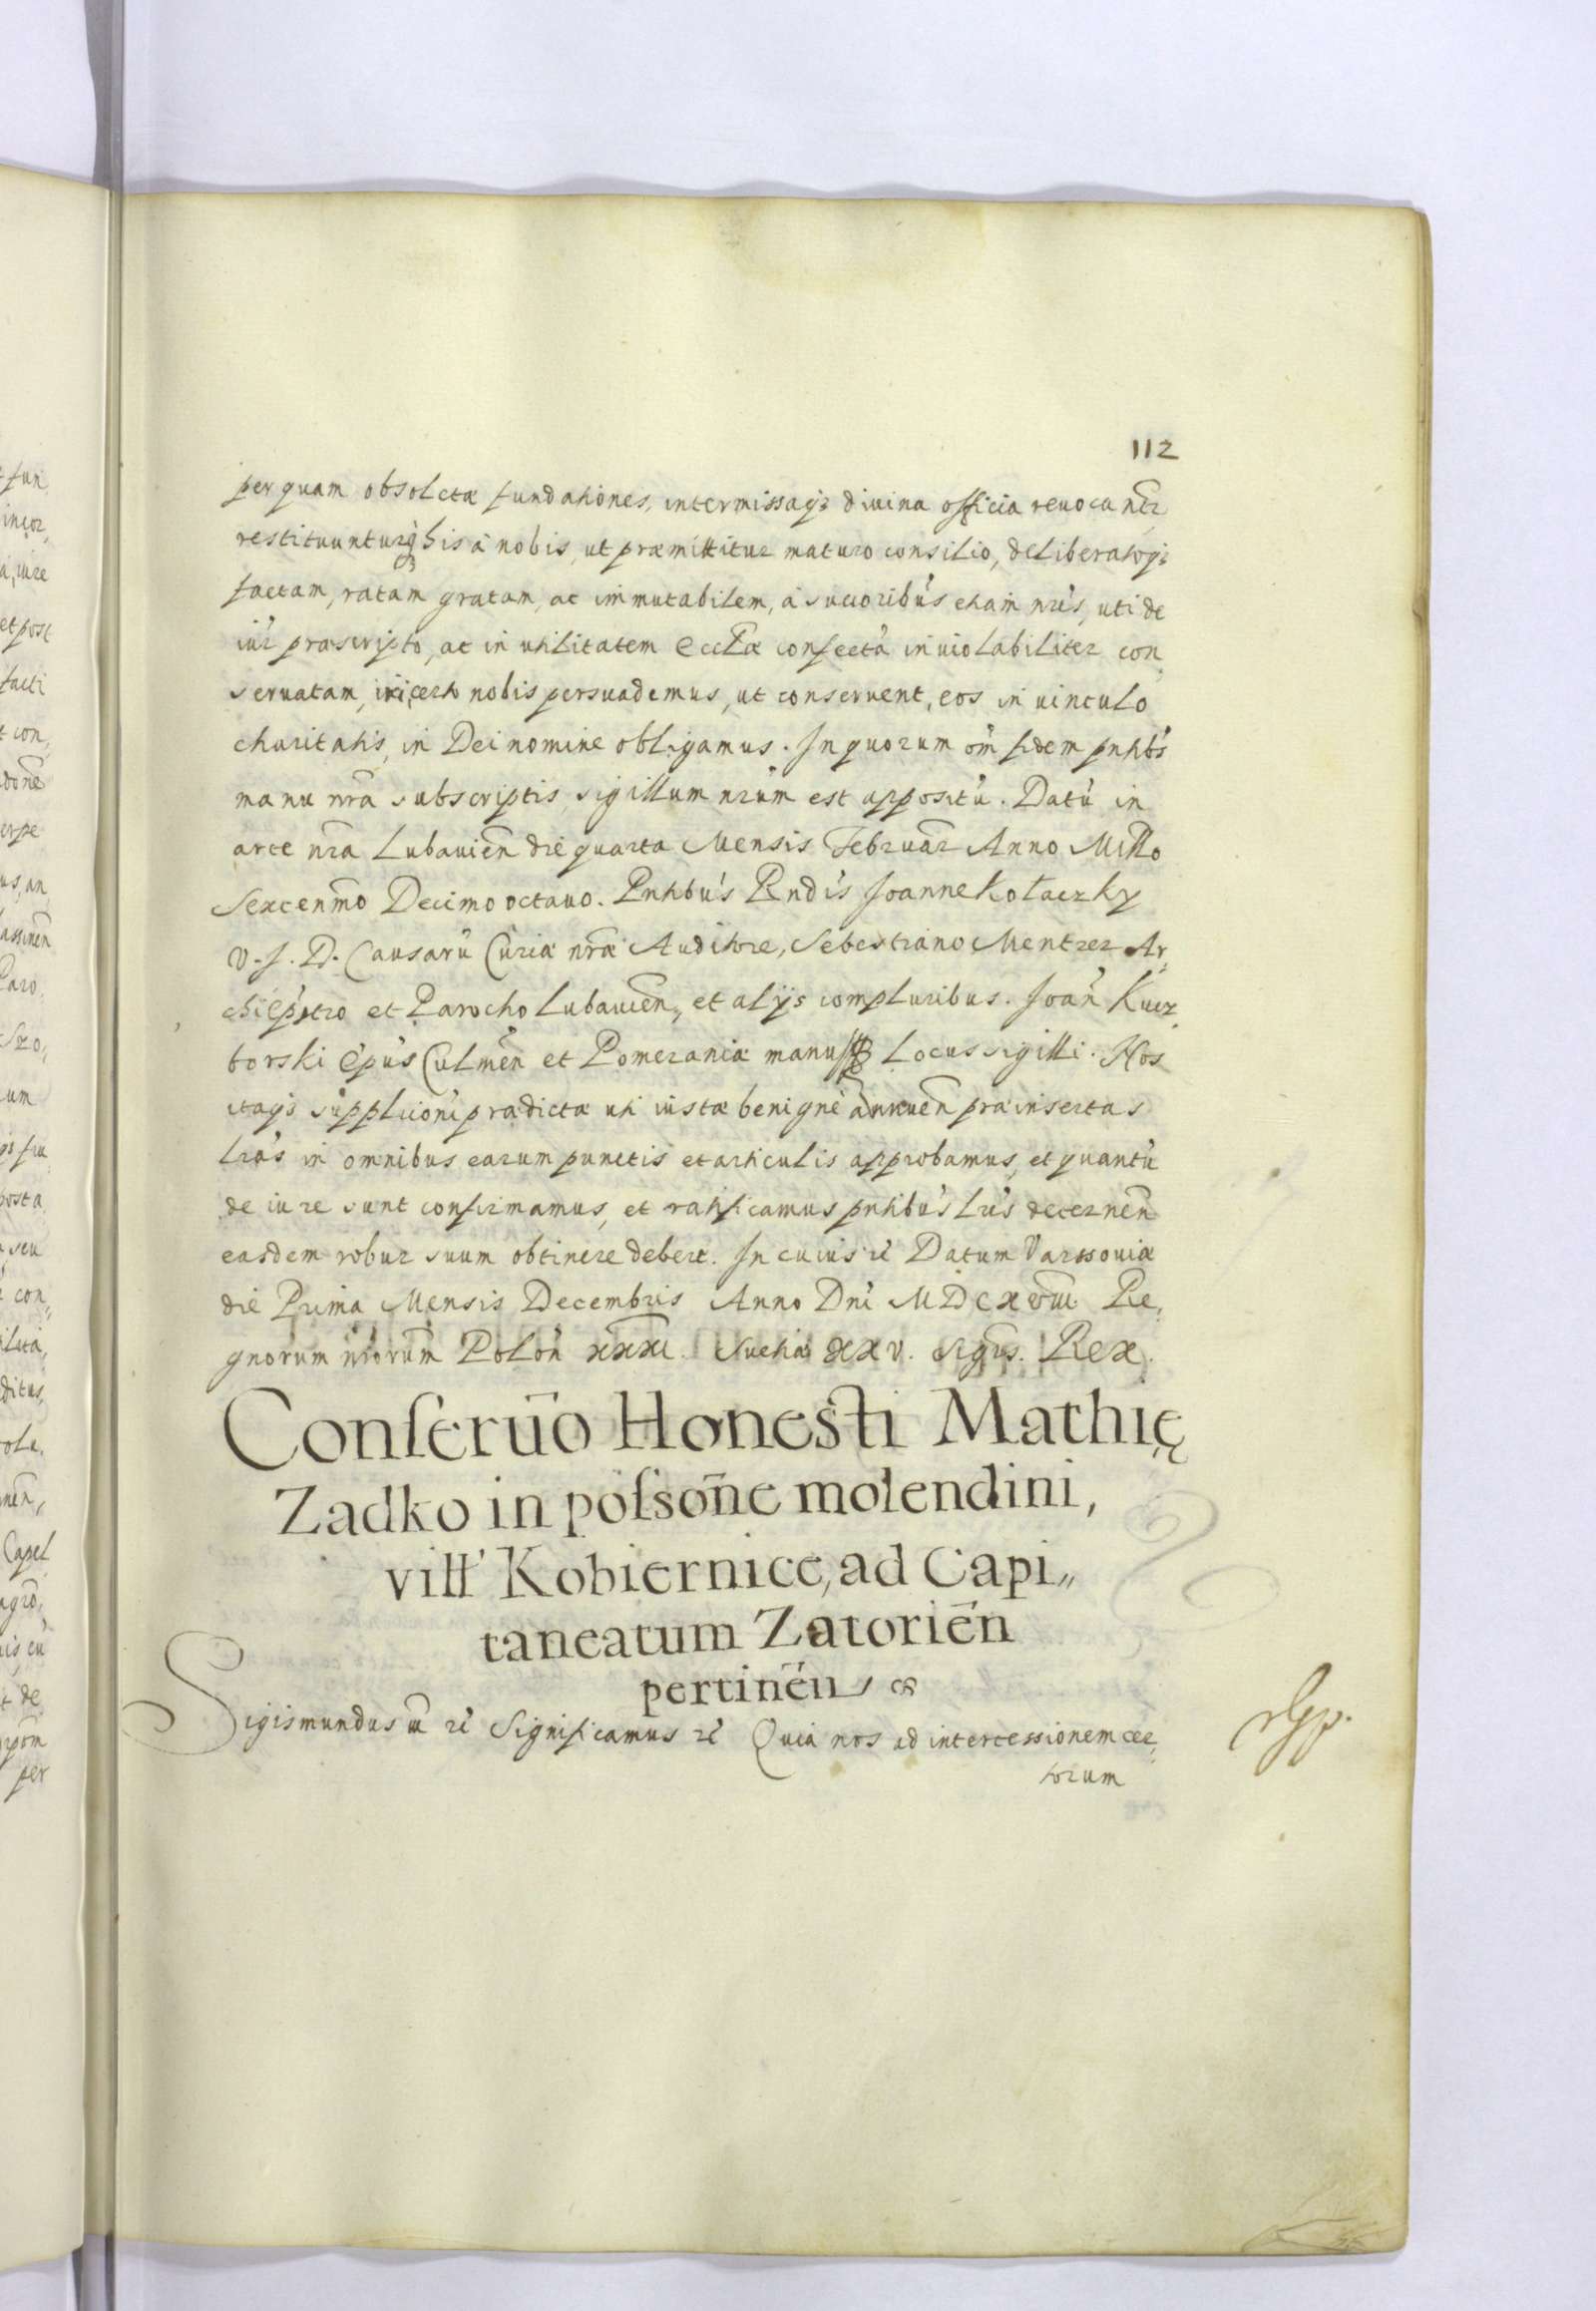 112
per quam obsoletæ fundationes, intermissaqз divina officia reuocantr̃
restituuntur, his à nobis, ut præmittitur maturo consilio, deliberatoqз
factam, ratam gratam, ac immutabilem, à succoribùs etiam nris, uti de
iur præscripto, ac in utilitatem Ecclæ confectà inuiolabiliter con,
seruatam, iri, certo nobis persuademus, ut conseruent, eos in uinculo
charitatis, in Dei nomine obligamus. In quorum om̃ fidem pntibs
manu nrã subscriptis, sigillum nrũm est appositũ. Datũ in
arce nrã Lubauien̄ die quarta Mensis Februar̄ Anno Mill̄o
Sexcenm̄o Decimo octauo. Pntibùs Rndis Joanne Kołaczky
V. J. D. Causarũ Curiæ nræ Auditore, Sebestiano Mentzer Ar,
chiepr̄tro et Parocho Lubauien̄, et alijs compluribus. Joan̄ Kucz,
borski Ep̄us Culmen̄ et Pomeraniæ manu Locus sigilli. Nos
itaqз supplicioni prædictæ uti iustæ benignè annuen̄ præinsertas
lrãs in omnibus earum punctis et articulis approbamus, et quantũ
de iure sunt confirmamus, et ratificamus pntibùs lrìs decernen̄
easdem robur suum obtinere debere. In cuius rè Datum Varssouiæ
die Prima Mensis Decembris Anno Dnì MDCXVIII Re,
gnorum nrorum̄ Polon̄ XXXI. Suetiæ XXV. Sigm̄s. Rex.
Conſerũo Honesti Mathię
Zadko in poſsōne molendini,
vill' Kobiernice, ad Capi,,
taneatum Zatorien̄
pertinen̄
Sigismundus III rè Significamus rè Quia nos ad intercessionem cer,
torum